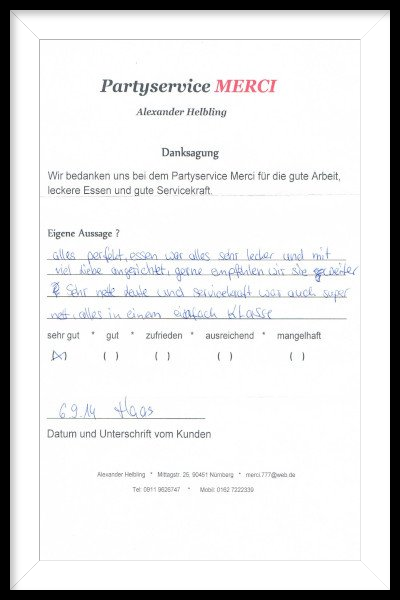 Partyservice MERCI
Alexander Helbling
Danksagung
Wir bedanken uns bei dem Partyservice Merci für die gute Arbeit,
leckere Essen und gute Servicekraft.
Eigene Aussage ?
alles perfekt, essen war alles sehr lecker und mit
viel liebe angerichtet, gerne empfehlen wir sie weiter
Sehr nette leute und servicekraft war auch super
nett, alles in einem einfach Klasse
sehr gut * gut * zufrieden * ausreichend * mangelhaft
(X) ( ) ( ) ( ) ( )
6.9.14 Haas
Datum und Unterschrift vom Kunden
Alexander Helbling * Mittagstr. 25, 90451 Nürnberg * merci.777@web.de
Tel: 0911 9626747 * Mobil: 0162 7222339